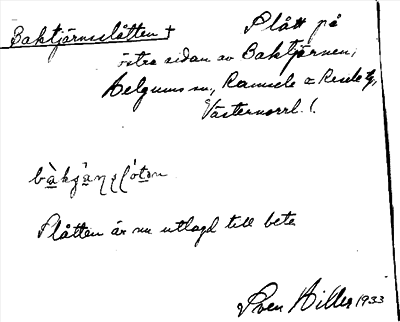 Baktjärnsslåtten + Slått på
östra sidan av Baktjärnen,
Helgums sn, Ramsele o Resele tg,
Västernorrl. l.
Slåtten är nu utlagd till bete
Sven Hiller 1933